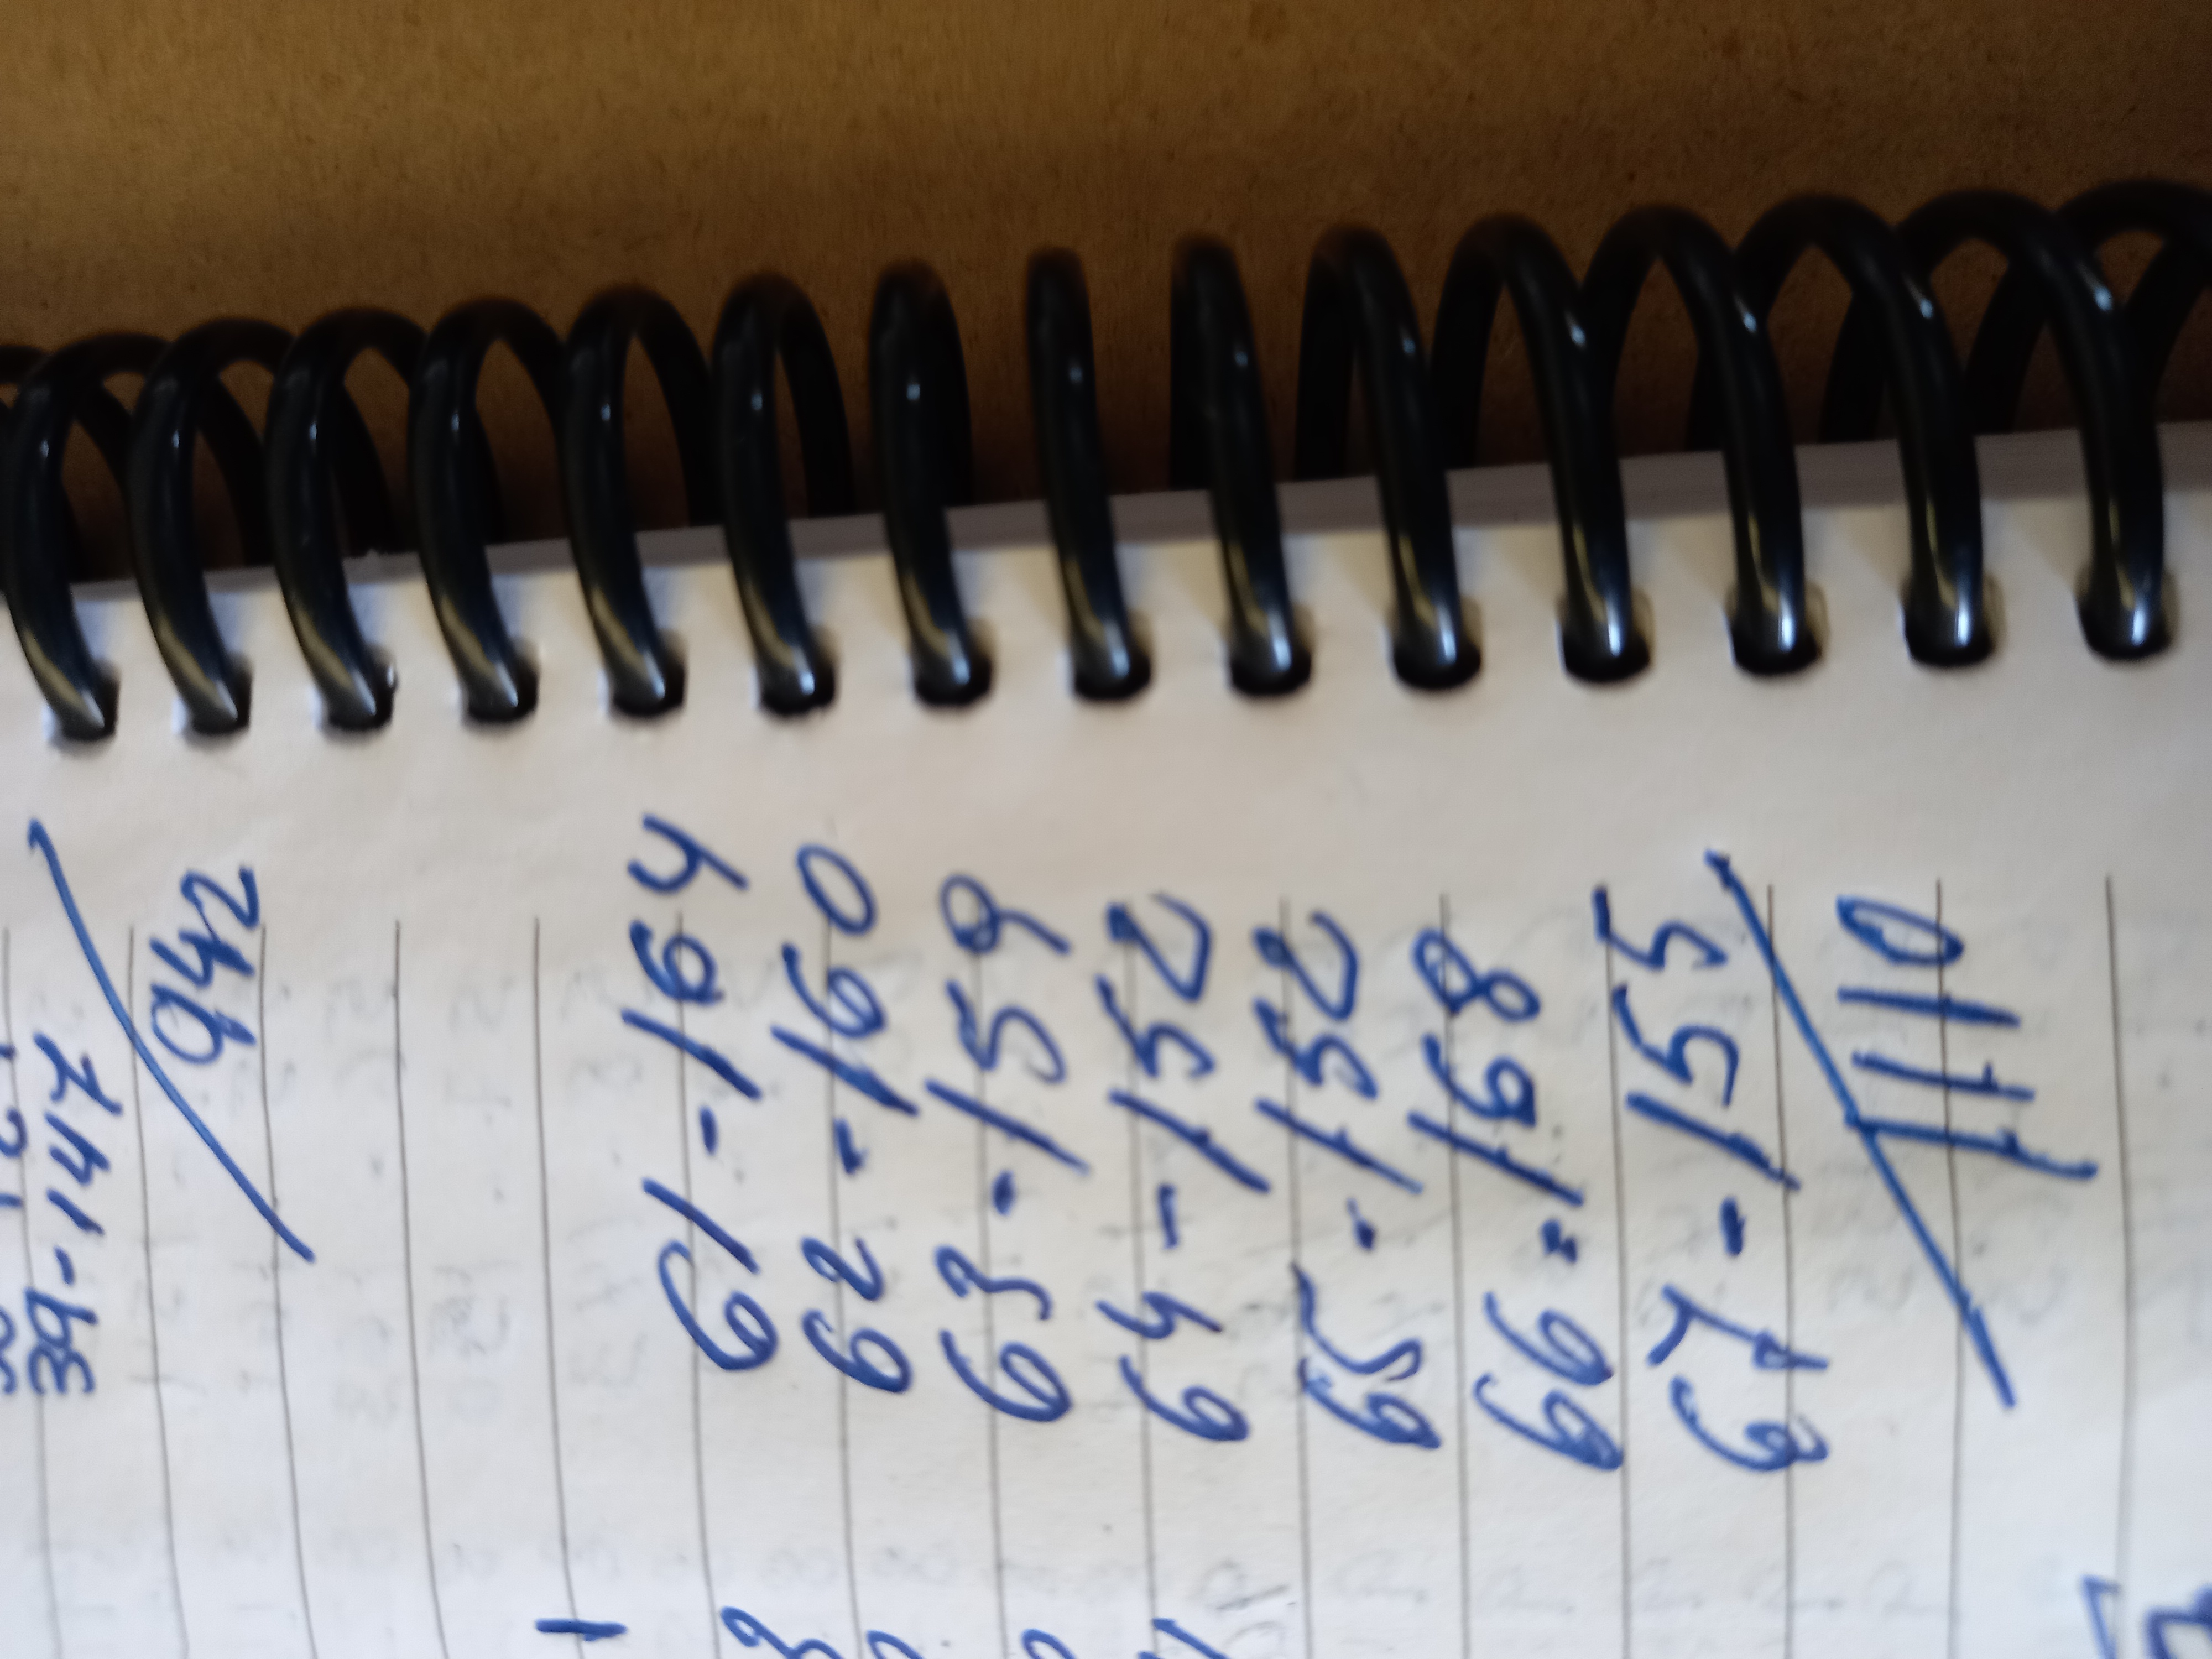 39-147
942
61-164
62-160
63-159
64-157
65-157
66-158
67-155
1110